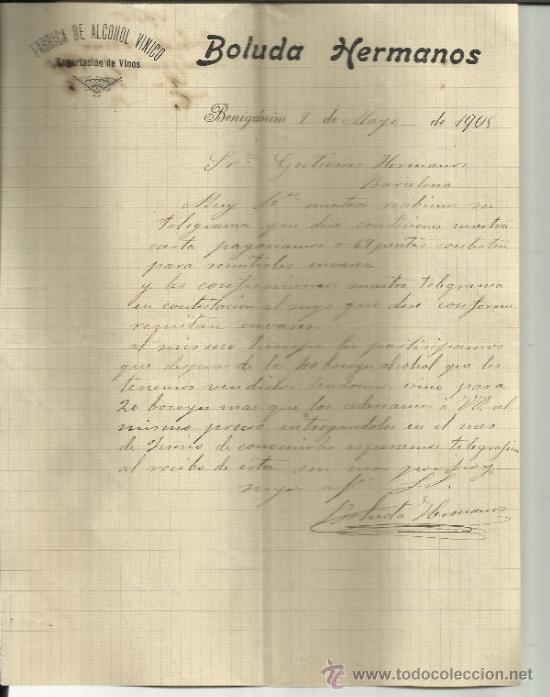 FABRICA DE ALCOHOL VINICO
Exportación de Vinos
Boluda Hermanos
Benigánim 9 de Mayo de 1908
Sres Gutierrez Hermanos
Barcelona
Muy Sres nuestros recibimos su
telegrama que dice condiciones nuestra
carta pagariamos a 68 pesetas contesten
para remitirles envases
y les confirmamos nuestro telegrama
en contestacion al suyo que dice conforme
remitan envases.
al mismo tiempo les participamos
que despues de los 40 bocoyes alcohol que les
tenemos vendidos tendremos vino para
20 bocoyes mas que los a VV. al
mismo precio entregandolos en el mes
de Junio de convenirles esperamos
al recibo de esta sin mas por hoy
suyos afmos
Boluda Hermanos
todocoleccion
www.todocoleccion.net